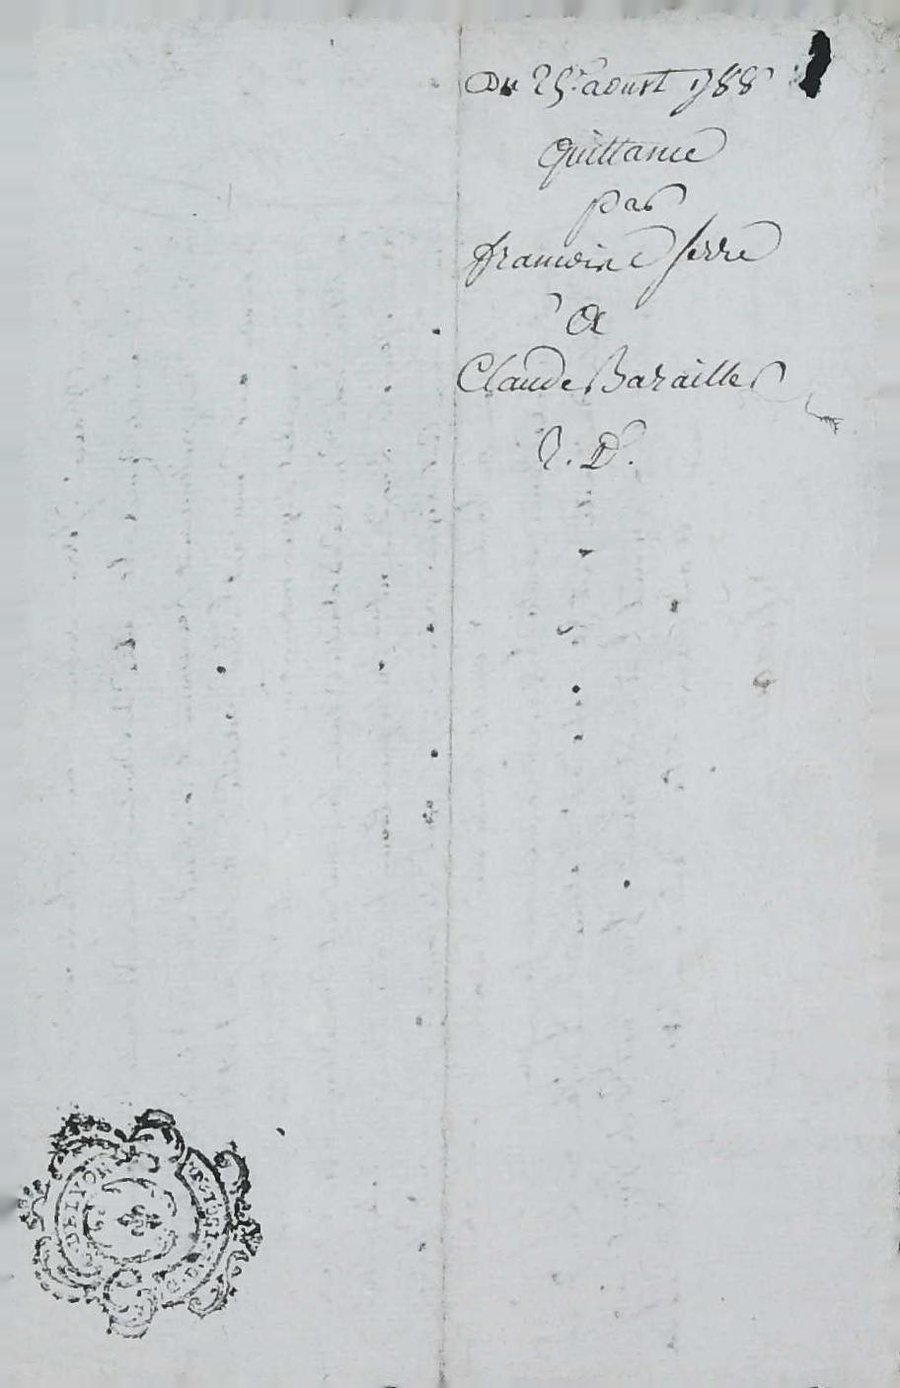 Du 25 aoust 1788
Quittance
par
francoise serre
a
Claude Baraille
2. D.
DE LYON